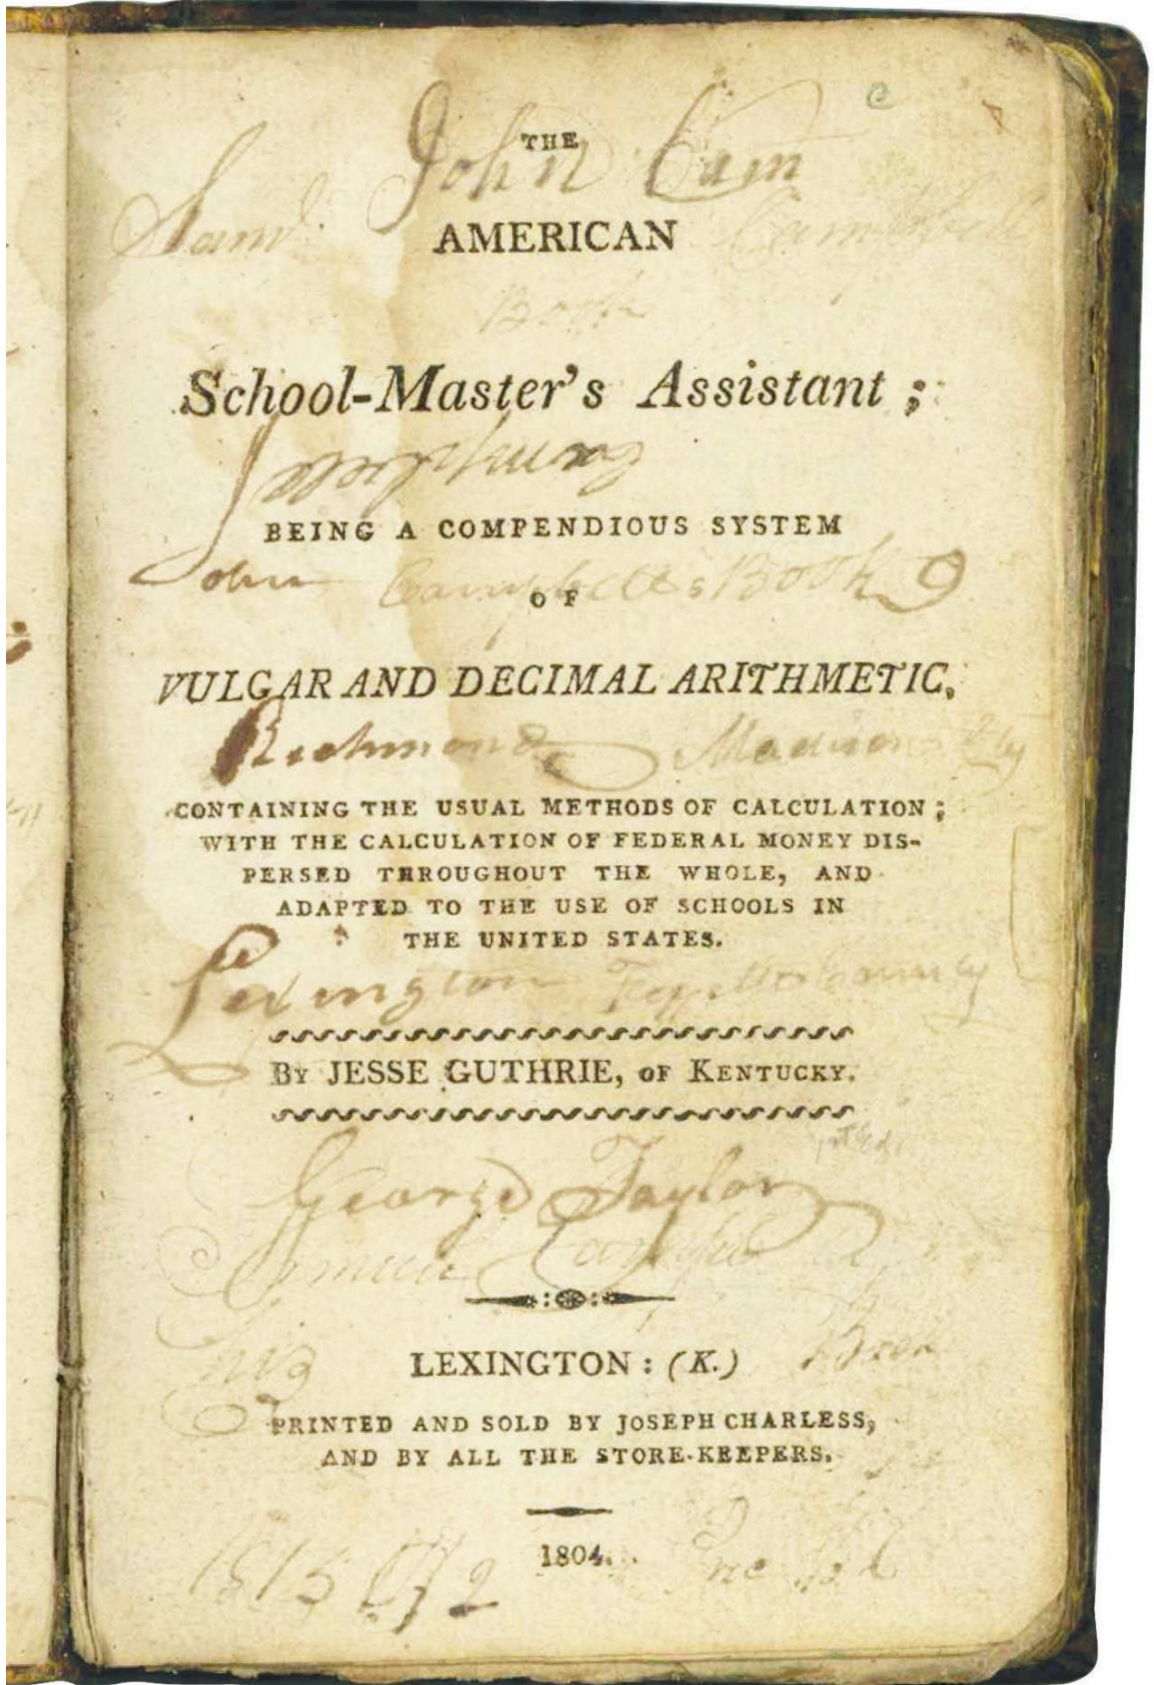 THE
John Cam
Saml.
AMERICAN
Book
School-Master's Assistant ;
Campbell
BEING A COMPENDIOUS SYSTEM
John Campbells Book
OF
VULGAR AND DECIMAL ARITHMETIC,
Richmond Madison
CONTAINING THE USUAL METHODS OF CALCULATION ;
WITH THE CALCULATION OF FEDERAL MONEY DIS-
PERSED THROUGHOUT THE WHOLE, AND
ADAPTED TO THE USE OF SCHOOLS IN
THE UNITED STATES.
Lexington Fayette County
BY JESSE GUTHRIE, OF KENTUCKY.
1st Ed.
George Taylor
LEXINGTON : (K.)
Book
PRINTED AND SOLD BY JOSEPH CHARLESS,
AND BY ALL THE STORE-KEEPERS.
1804.
1815